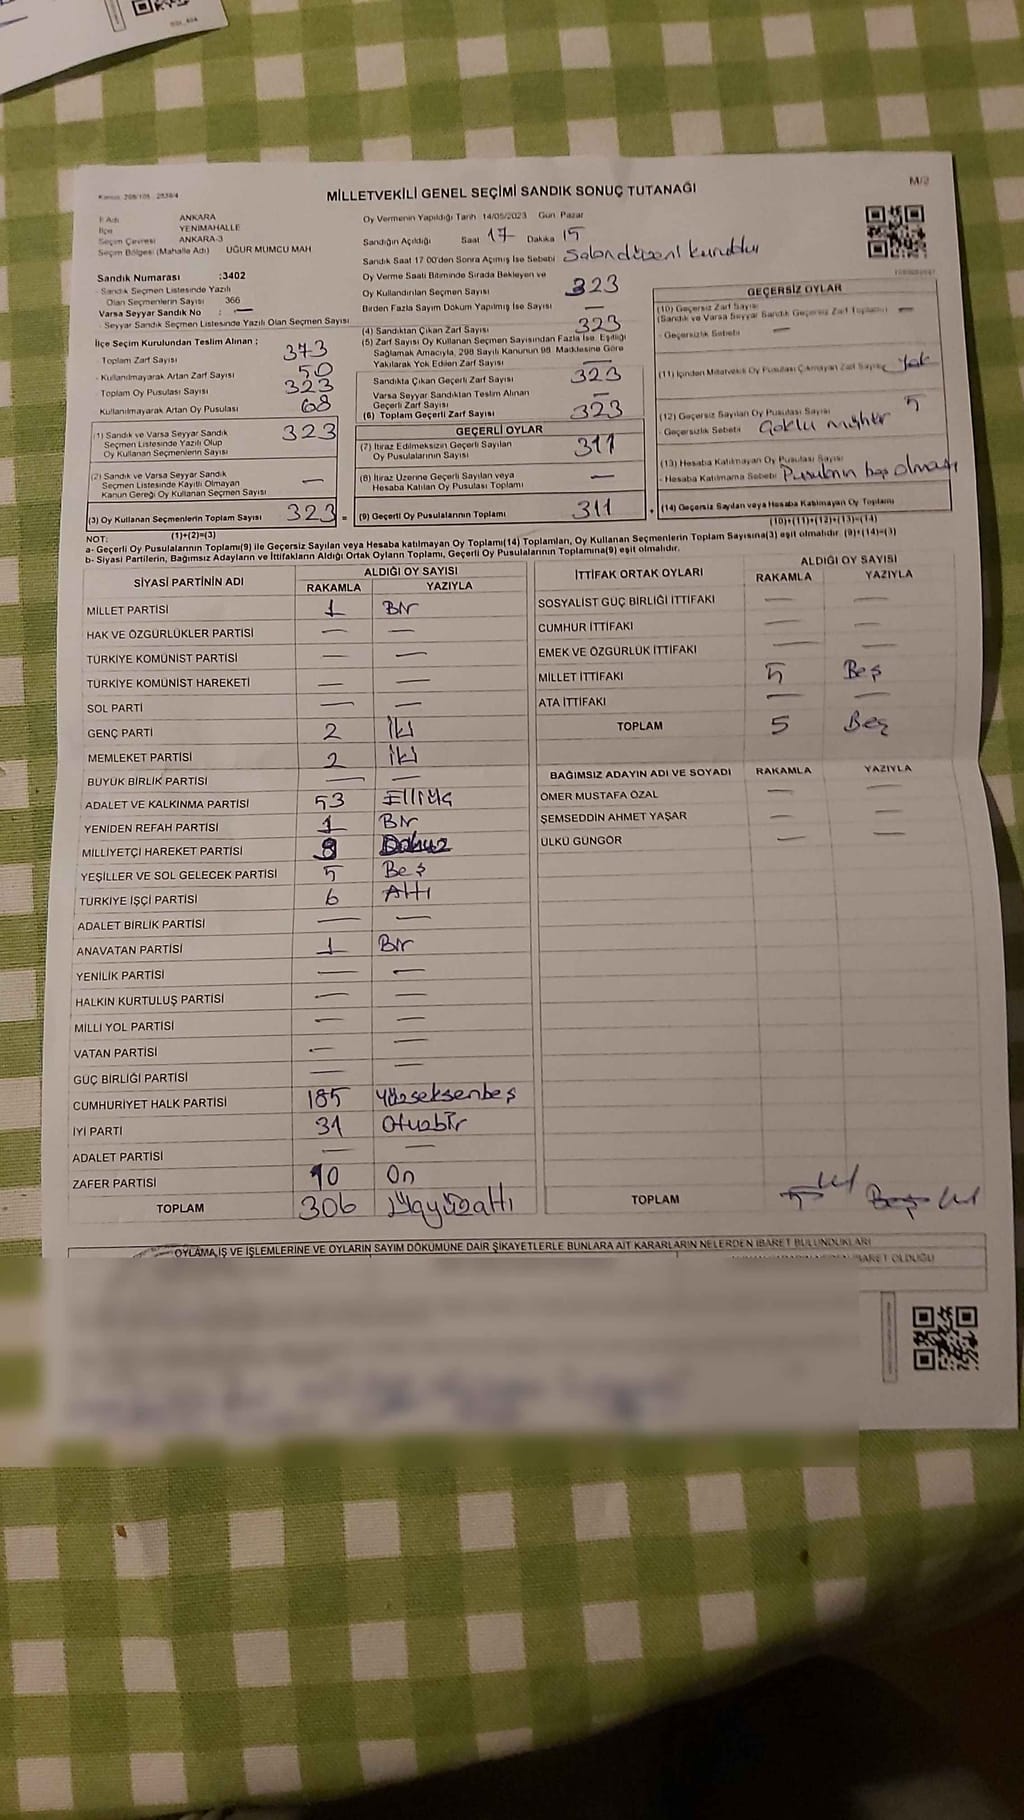 MİLLETVEKİLİ GENEL SEÇİMİ SANDIK SONUÇ TUTANAĞI
M/2
İl Adı ANKARA
İlçe YENİMAHALLE
Seçim Çevresi ANKARA-3
Seçim Bölgesi (Mahalle Adı) UĞUR MUMCU MAH
Sandık Numarası :3402
- Sandık Seçmen Listesinde Yazılı
Olan Seçmenlerin Sayısı 366
Varsa Seyyar Sandık No : —
- Seyyar Sandık Seçmen Listesinde Yazılı Olan Seçmen Sayısı
İlçe Seçim Kurulundan Teslim Alınan ;
- Toplam Zarf Sayısı 373
- Kullanılmayarak Artan Zarf Sayısı 50
- Toplam Oy Pusulası Sayısı 323
Kullanılmayarak Artan Oy Pusulası 68
(1) Sandık ve Varsa Seyyar Sandık 323
Seçmen Listesinde Yazılı Olup
Oy Kullanan Seçmenlerin Sayısı
(2) Sandık ve Varsa Seyyar Sandık
Seçmen Listesinde Kayıtlı Olmayan —
Kanun Gereği Oy Kullanan Seçmen Sayısı
(3) Oy Kullanan Seçmenlerin Toplam Sayısı 323 =
(1)+(2)=(3)
Oy Vermenin Yapıldığı Tarih 14/05/2023 Gün Pazar
Sandığın Açıldığı Saat 17 Dakika 15
Sandık Saat 17 00'den Sonra Açılmış İse Sebebi Salon düzeni kuruldu
Oy Verme Saati Bitiminde Sırada Bekleyen ve
Oy Kullandırılan Seçmen Sayısı 323
Birden Fazla Sayım Döküm Yapılmış İse Sayısı —
(4) Sandıktan Çıkan Zarf Sayısı 323
(5) Zarf Sayısı Oy Kullanan Seçmen Sayısından Fazla İse, Eşitliği
Sağlamak Amacıyla, 298 Sayılı Kanunun 98 Maddesine Göre
Yakılarak Yok Edilen Zarf Sayısı —
Sandıkta Çıkan Geçerli Zarf Sayısı 323
Varsa Seyyar Sandıktan Teslim Alınan —
Geçerli Zarf Sayısı
(6) Toplam Geçerli Zarf Sayısı 323
GEÇERLİ OYLAR
(7) İtiraz Edilmeksizin Geçerli Sayılan 311
Oy Pusulalarının Sayısı
(8) İtiraz Üzerine Geçerli Sayılan veya —
Hesaba Katılan Oy Pusulası Toplamı
(9) Geçerli Oy Pusulalarının Toplamı 311
GEÇERSİZ OYLAR
(10) Geçersiz Zarf Sayısı
(Sandık ve Varsa Seyyar Sandık Geçersiz Zarf Toplamı) —
- Geçersizlik Sebebi —
(11) İçinden Milletvekili Oy Pusulası Çıkmayan Zarf Sayısı Yok
(12) Geçersiz Sayılan Oy Pusulası Sayısı 5
- Geçersizlik Sebebi Çoklu mühür
(13) Hesaba Katılmayan Oy Pusulası Sayısı
- Hesaba Katılmama Sebebi Pusulanın boş olması
(14) Geçersiz Sayılan veya Hesaba Katılmayan Oy Toplamı
(10)+(11)+(12)+(13)=(14)
NOT:
a- Geçerli Oy Pusulalarının Toplamı(9) ile Geçersiz Sayılan veya Hesaba katılmayan Oy Toplamı(14) Toplamları, Oy Kullanan Seçmenlerin Toplam Sayısına(3) eşit olmalıdır. (9)+(14)=(3)
b- Siyasi Partilerin, Bağımsız Adayların ve İttifakların Aldığı Ortak Oyların Toplamı, Geçerli Oy Pusulalarının Toplamına(9) eşit olmalıdır.
SİYASİ PARTİNİN ADI ALDIĞI OY SAYISI
RAKAMLA YAZIYLA
MİLLET PARTİSİ 1 Bir
HAK VE ÖZGÜRLÜKLER PARTİSİ — —
TÜRKİYE KOMÜNİST PARTİSİ — —
TÜRKİYE KOMÜNİST HAREKETİ — —
SOL PARTİ — —
GENÇ PARTİ 2 İki
MEMLEKET PARTİSİ 2 İki
BÜYÜK BİRLİK PARTİSİ — —
ADALET VE KALKINMA PARTİSİ 53 Elliüç
YENİDEN REFAH PARTİSİ 1 Bir
MİLLİYETÇİ HAREKET PARTİSİ 9 Dokuz
YEŞİLLER VE SOL GELECEK PARTİSİ 5 Beş
TÜRKİYE İŞÇİ PARTİSİ 6 Altı
ADALET BİRLİK PARTİSİ — —
ANAVATAN PARTİSİ 1 Bir
YENİLİK PARTİSİ — —
HALKIN KURTULUŞ PARTİSİ — —
MİLLİ YOL PARTİSİ — —
VATAN PARTİSİ — —
GÜÇ BİRLİĞİ PARTİSİ — —
CUMHURİYET HALK PARTİSİ 185 Yüzseksenbeş
İYİ PARTİ 31 Otuzbir
ADALET PARTİSİ — —
ZAFER PARTİSİ 10 On
TOPLAM 306 Üçyüzaltı
İTTİFAK ORTAK OYLARI ALDIĞI OY SAYISI
RAKAMLA YAZIYLA
SOSYALİST GÜÇ BİRLİĞİ İTTİFAKI — —
CUMHUR İTTİFAKI — —
EMEK VE ÖZGÜRLÜK İTTİFAKI — —
MİLLET İTTİFAKI 5 Beş
ATA İTTİFAKI — —
TOPLAM 5 Beş
BAĞIMSIZ ADAYIN ADI VE SOYADI RAKAMLA YAZIYLA
ÖMER MUSTAFA ÖZAL — —
ŞEMSEDDİN AHMET YAŞAR — —
ÜLKÜ GÜNGÖR — —
TOPLAM 5 Beş
OYLAMA, İŞ VE İŞLEMLERİNE VE OYLARIN SAYIM DÖKÜMÜNE DAİR ŞİKAYETLERLE BUNLARA AİT KARARLARIN NELERDEN İBARET BULUNDUKLARI
İBARET OLDUĞU